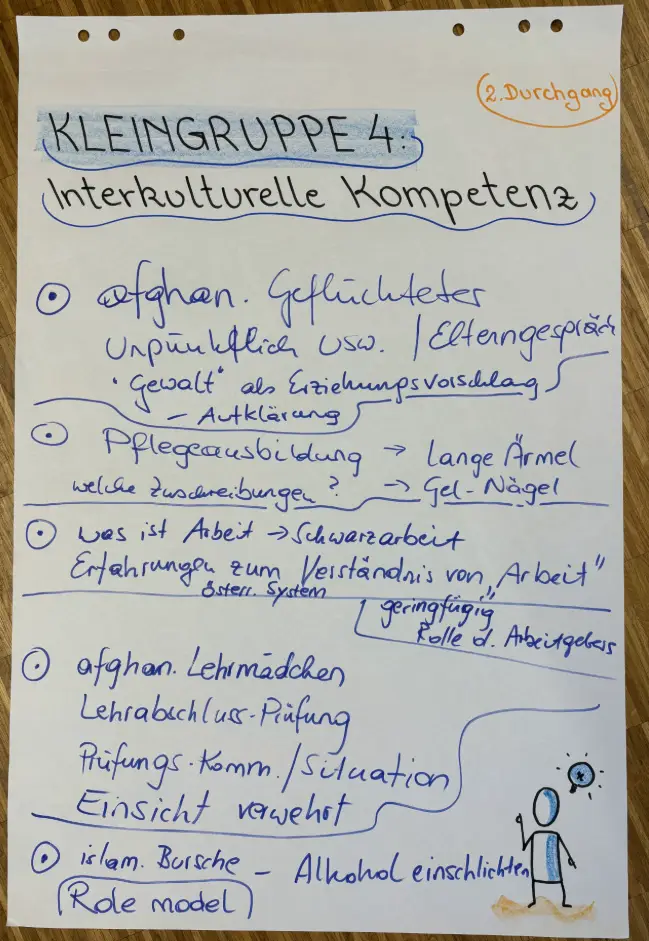 2. Durchgang
KLEINGRUPPE 4:
Interkulturelle Kompetenz
afghan. Geflüchteter
Unpünktlich usw. / Elterngespräch
"Gewalt" als Erziehungsvorschlag
– Aufklärung
Pflegeausbildung → Lange Ärmel
welche Zuschreibungen? → Gel-Nägel
was ist Arbeit → Schwarzarbeit
Erfahrungen zum Verständnis von „Arbeit"
österr. System
"geringfügig"
Rolle d. Arbeitgebers
afghan. Lehrmädchen
Lehrabschluss-Prüfung
Prüfungs-Komm. / Situation
Einsicht verwehrt
islam. Bursche – Alkohol einschlichten
Role model